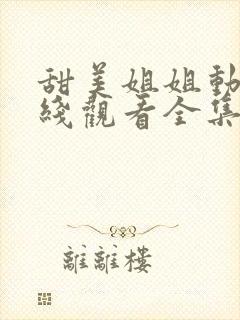 甜美姐姐動
綫觀看全集
離離樓